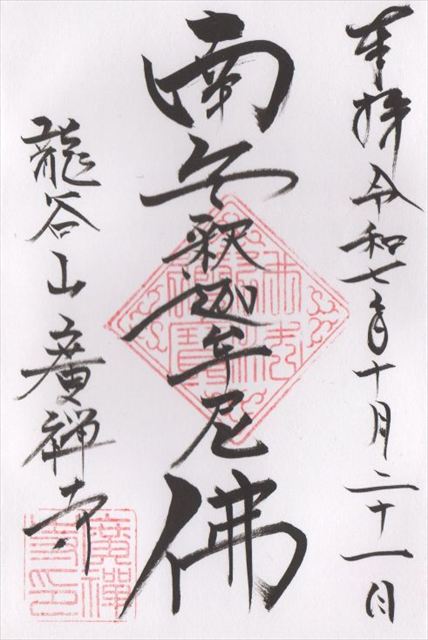 奉拝 令和七年十月二十一日
南無釈迦牟尼佛
龍谷山廣禅寺
廣禅寺印